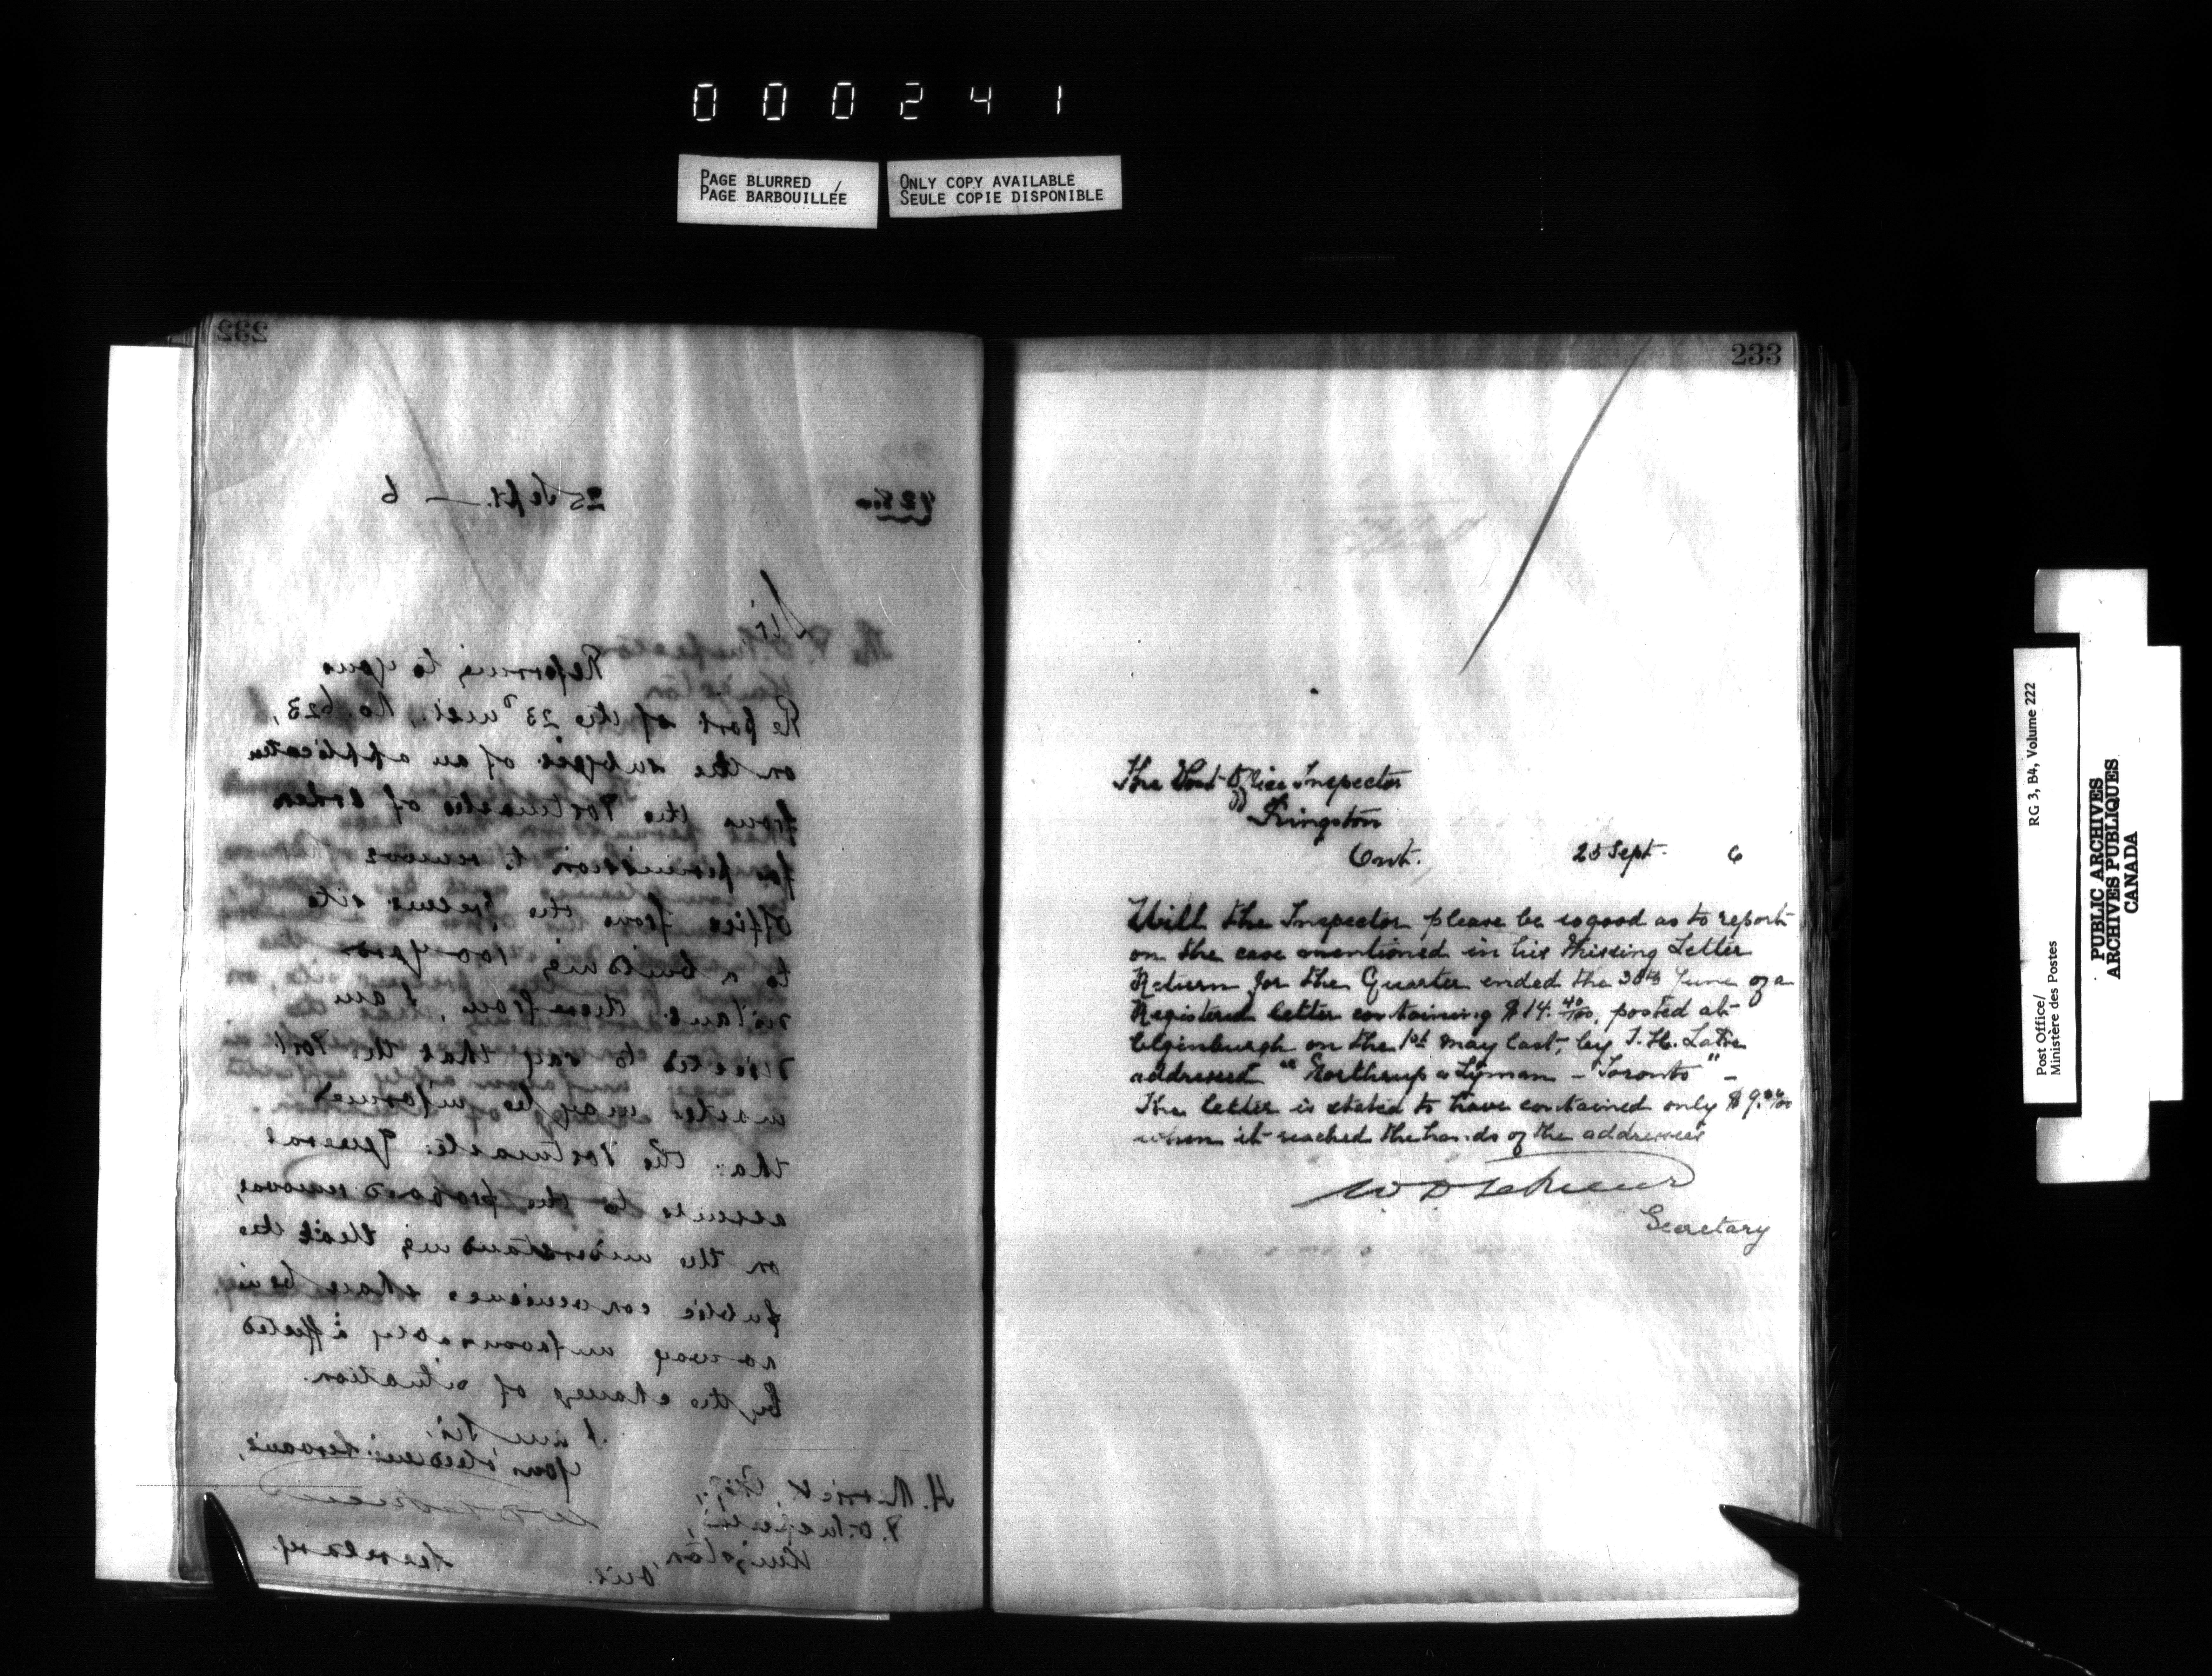 000241
PAGE BLURRED /
PAGE BARBOUILLÉE
ONLY COPY AVAILABLE
SEULE COPIE DISPONIBLE
232
25 Sept. — 6
Sir,
Referring to your
Report of the 23d inst., No. 623,
on the subject of an application
from the Postmaster of
for permission to remove
office from the present site
to a building 100 yards
distant therefrom, I am
directed to say that the Post
master may be informed
that the Postmaster General
assents to the proposed removal,
on the understanding that the
public convenience shall be in
no way unfavourably affected
by the change of situation.
I am Sir,
Your obedient Servant,
Secretary
H. Merrick, Esq.,
P.O. Inspector,
Kingston,
Ont.
233
The Post Office Inspector
Kingston
Ont.,
25 Sept. 6
Will the Inspector please be so good as to report
on the case mentioned in his Missing Letter
Return for the Quarter ended the 30th June of a
Registered letter containing $14. 40/100, posted at
Elginburgh on the 1st May last, by J. H.
addressed "Northrup & Lyman - Toronto" -
The letter is stated to have contained only $9.
when it reached the hands of the addressees
Secretary
Post Office/
Ministère des Postes
RG 3, B4, Volume 222
PUBLIC ARCHIVES
ARCHIVES PUBLIQUES
CANADA